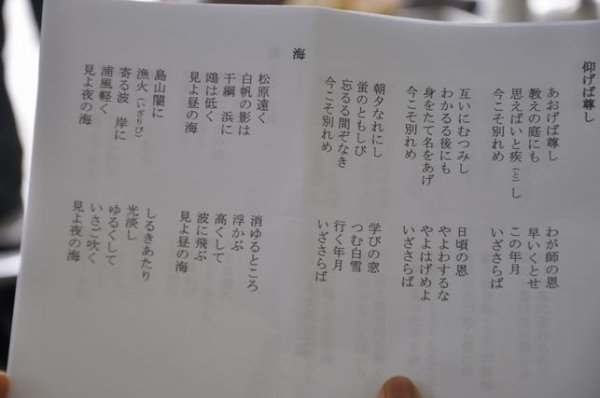 仰げば尊し
あおげば尊し　わが師の恩
教えの庭にも　早いくとせ
思えばいと疾(と)し　この年月
今こそ別れめ　いざさらば
互いにむつみし　日頃の恩
わかるる後にも　やよわするな
身をたて名をあげ　やよはげめよ
今こそ別れめ　いざさらば
朝夕なれにし　学びの窓
蛍のともしび　つむ白雪
忘るる間ぞなき　行く年月
今こそ別れめ　いざさらば
海
松原遠く　消ゆるところ
白帆の影は　浮かぶ
干網　浜に　高くして
鴎は低く　波に飛ぶ
見よ昼の海　見よ昼の海
島山闇に　しるきあたり
漁火(いざりび)　光淡し
寄る波　岸に　ゆるくして
浦風軽く　いさご吹く
見よ夜の海　見よ夜の海